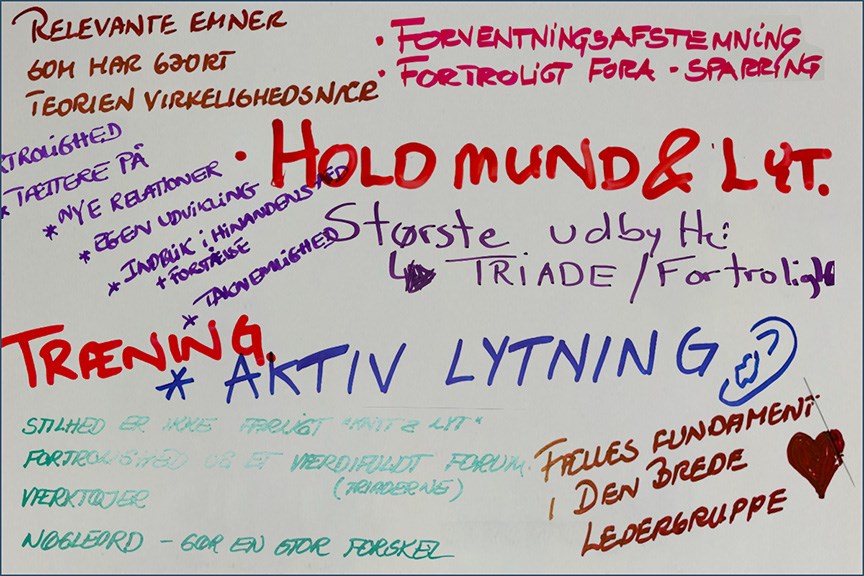 RELEVANTE EMNER
SOM HAR GJORT
TEORIEN VIRKELIGHEDSNÆR
• FORVENTNINGSAFSTEMNING
• FORTROLIGT FORA - SPARRING
RTROLIGHED
* TÆTTERE PÅ
* NYE RELATIONER
* EGEN UDVIKLING
* INDBLIK I HINANDENS
+ FORSTÅELSE
* TAKNEMLIGHED
• HOLD MUND & LYT.
Største udbytte:
↳ TRIADE / Fortrolighed
TRÆNING.
* AKTIV LYTNING
STILHED ER IKKE FARLIGT "KNIT & LYT"
FORTROLIGHED ET VÆRDIFULDT FORUM.
(TRIADERNE)
VÆRKTØJER
NØGLEORD - GØR EN STOR FORSKEL
FÆLLES FUNDAMENT
I DEN BREDE
LEDERGRUPPE